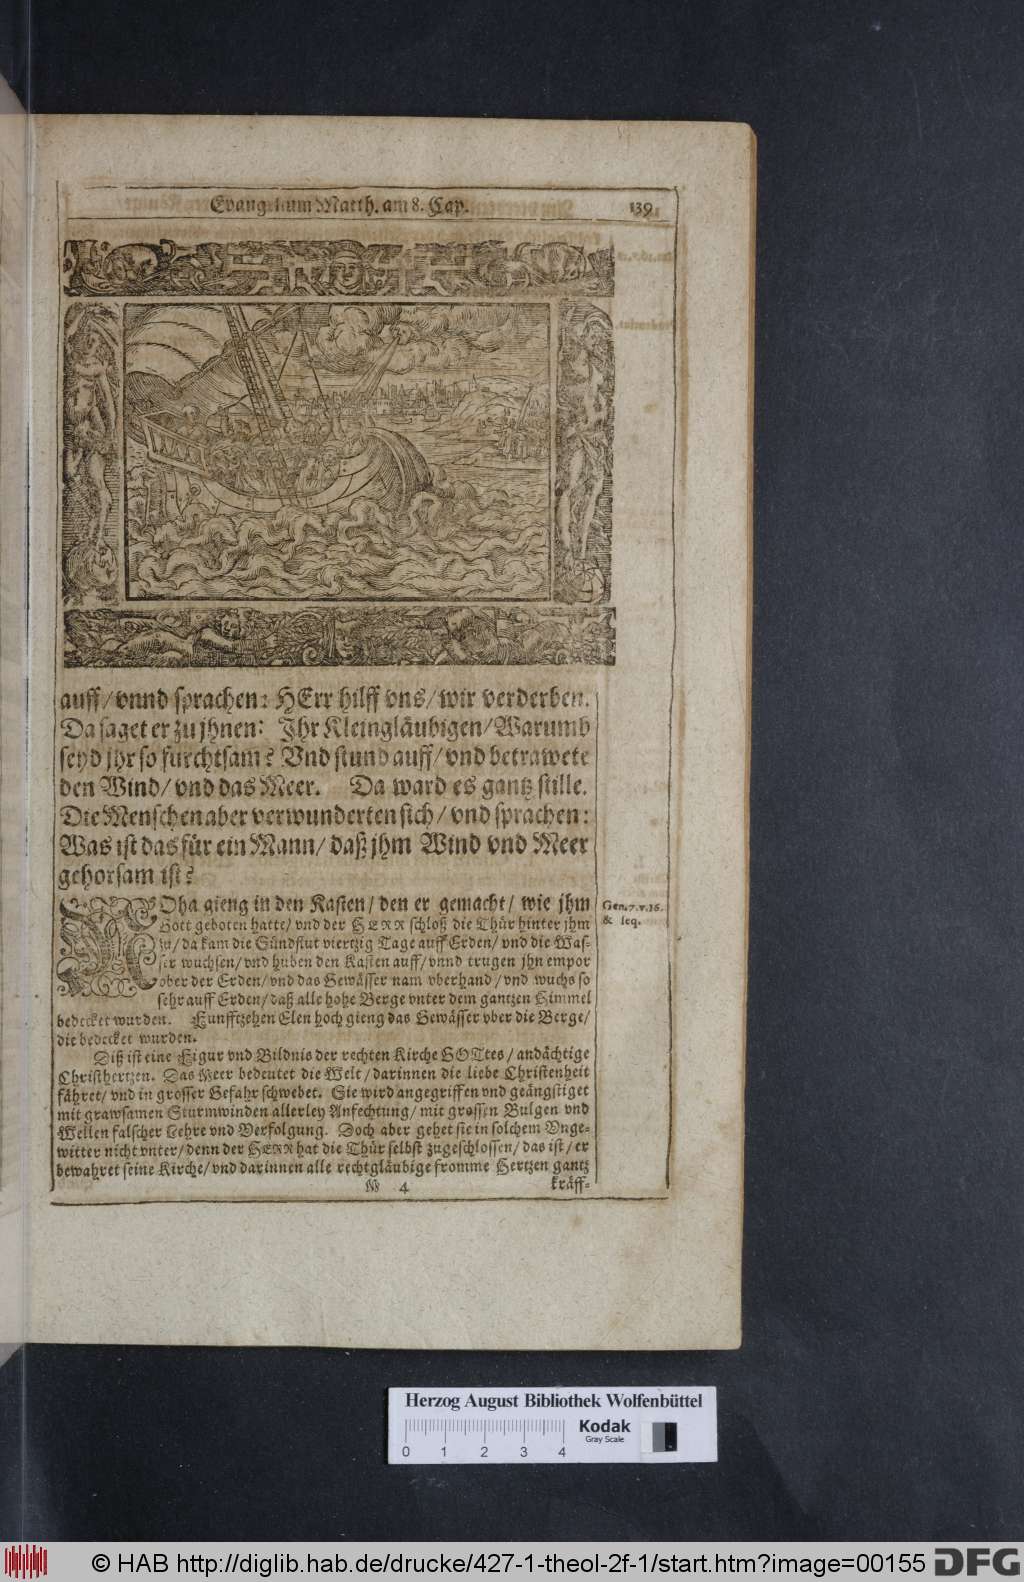 Evangelium Matth. am 8. Cap.
139
auff/ vnnd sprachen: HErr hilff vns/ wir verderben.
Da saget er zu jhnen: Jhr Kleingläubigen/ Warumb
seyd jhr so furchtsam? Vnd stund auff/ vnd betrawete
den Wind/ vnd das Meer. Da ward es gantz stille.
Die Menschen aber verwunderten sich/ vnd sprachen:
Was ist das für ein Mann/ daß jhm Wind vnd Meer
gehorsam ist?
NOha gieng in den Kasten/ den er gemacht/ wie jhm
Gott geboten hatte/ vnd der HERR schloß die Thür hinter jhm
zu/ da kam die Sündflut viertzig Tage auff Erden/ vnd die Was-
ser wuchsen/ vnd huben den Kasten auff/ vnnd trugen jhn empor
vber der Erden/ vnd das Gewässer nam vberhand/ vnd wuchs so
sehr auff Erden/ daß alle hohe Berge vnter dem gantzen Himmel
bedecket wurden. Funfftzehen Elen hoch gieng das Gewässer vber die Berge/
die bedecket wurden.
Gen. 7. v. 16.
& seq.
Diß ist eine Figur vnd Bildnis der rechten Kirche GOTtes/ andächtige
Christhertzen. Das Meer bedeutet die Welt/ darinnen die liebe Christenheit
fähret/ vnd in grosser Gefahr schwebet. Sie wird angegriffen vnd geängstiget
mit grawsamen Sturmwinden allerley Anfechtung/ mit grossen Bulgen vnd
Wellen falscher Lehre vnd Verfolgung. Doch aber gehet sie in solchem Vnge-
witter nicht vnter/ denn der HERR hat die Thür selbst zugeschlossen/ das ist/ er
bewahret seine Kirche/ vnd darinnen alle rechtgläubige fromme Hertzen gantz
M 4
kräff-
Herzog August Bibliothek Wolfenbüttel
0 1 2 3 4
Kodak
Gray Scale
© HAB http://diglib.hab.de/drucke/427-1-theol-2f-1/start.htm?image=00155
DFG